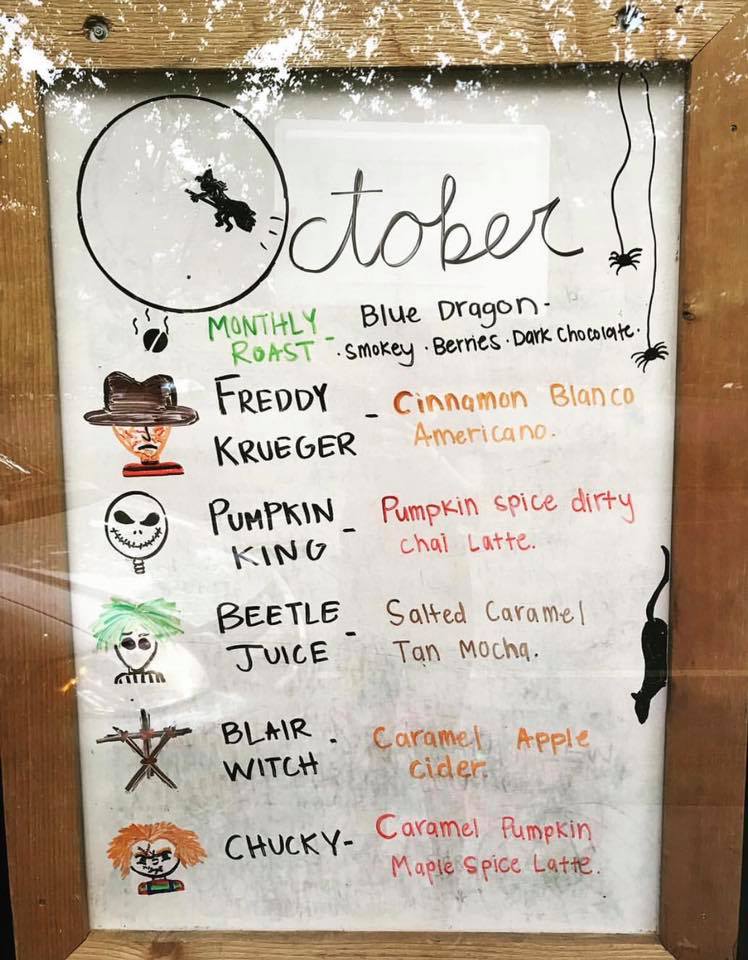 October
MONTHLY - Blue Dragon -
ROAST · Smokey · Berries · Dark Chocolate ·
FREDDY - Cinnamon Blanco
KRUEGER Americano.
PUMPKIN - Pumpkin spice dirty
KING chai Latte.
BEETLE - Salted Caramel
JUICE Tan Mocha.
BLAIR - Caramel Apple
WITCH Cider.
CHUCKY - Caramel Pumpkin
Maple Spice Latte.